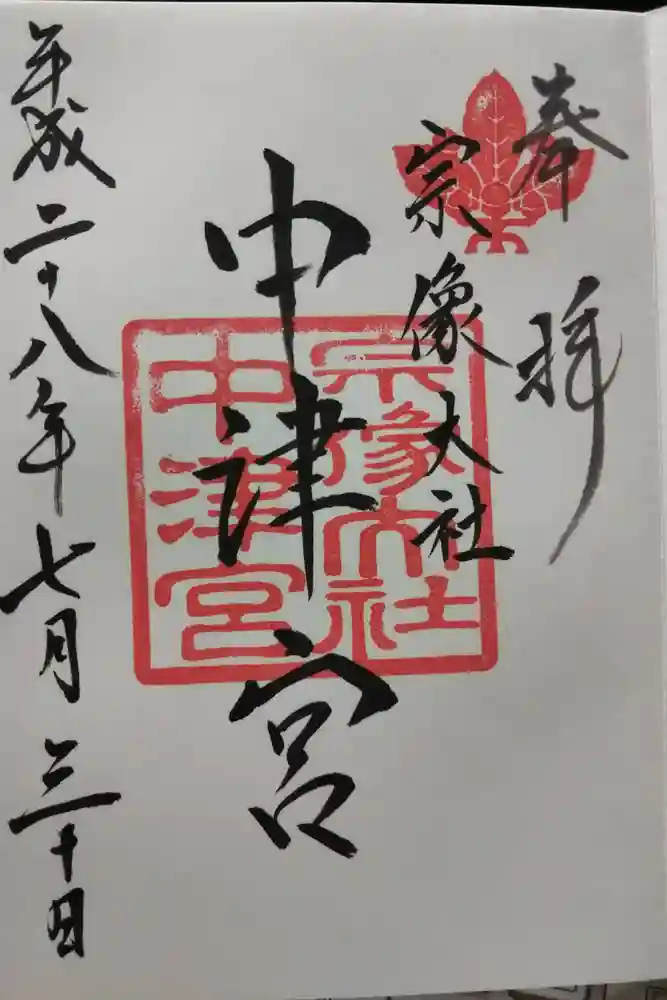 奉拝
宗像大社
中津宮
平成二十八年七月三十日
宗像大社
中津宮